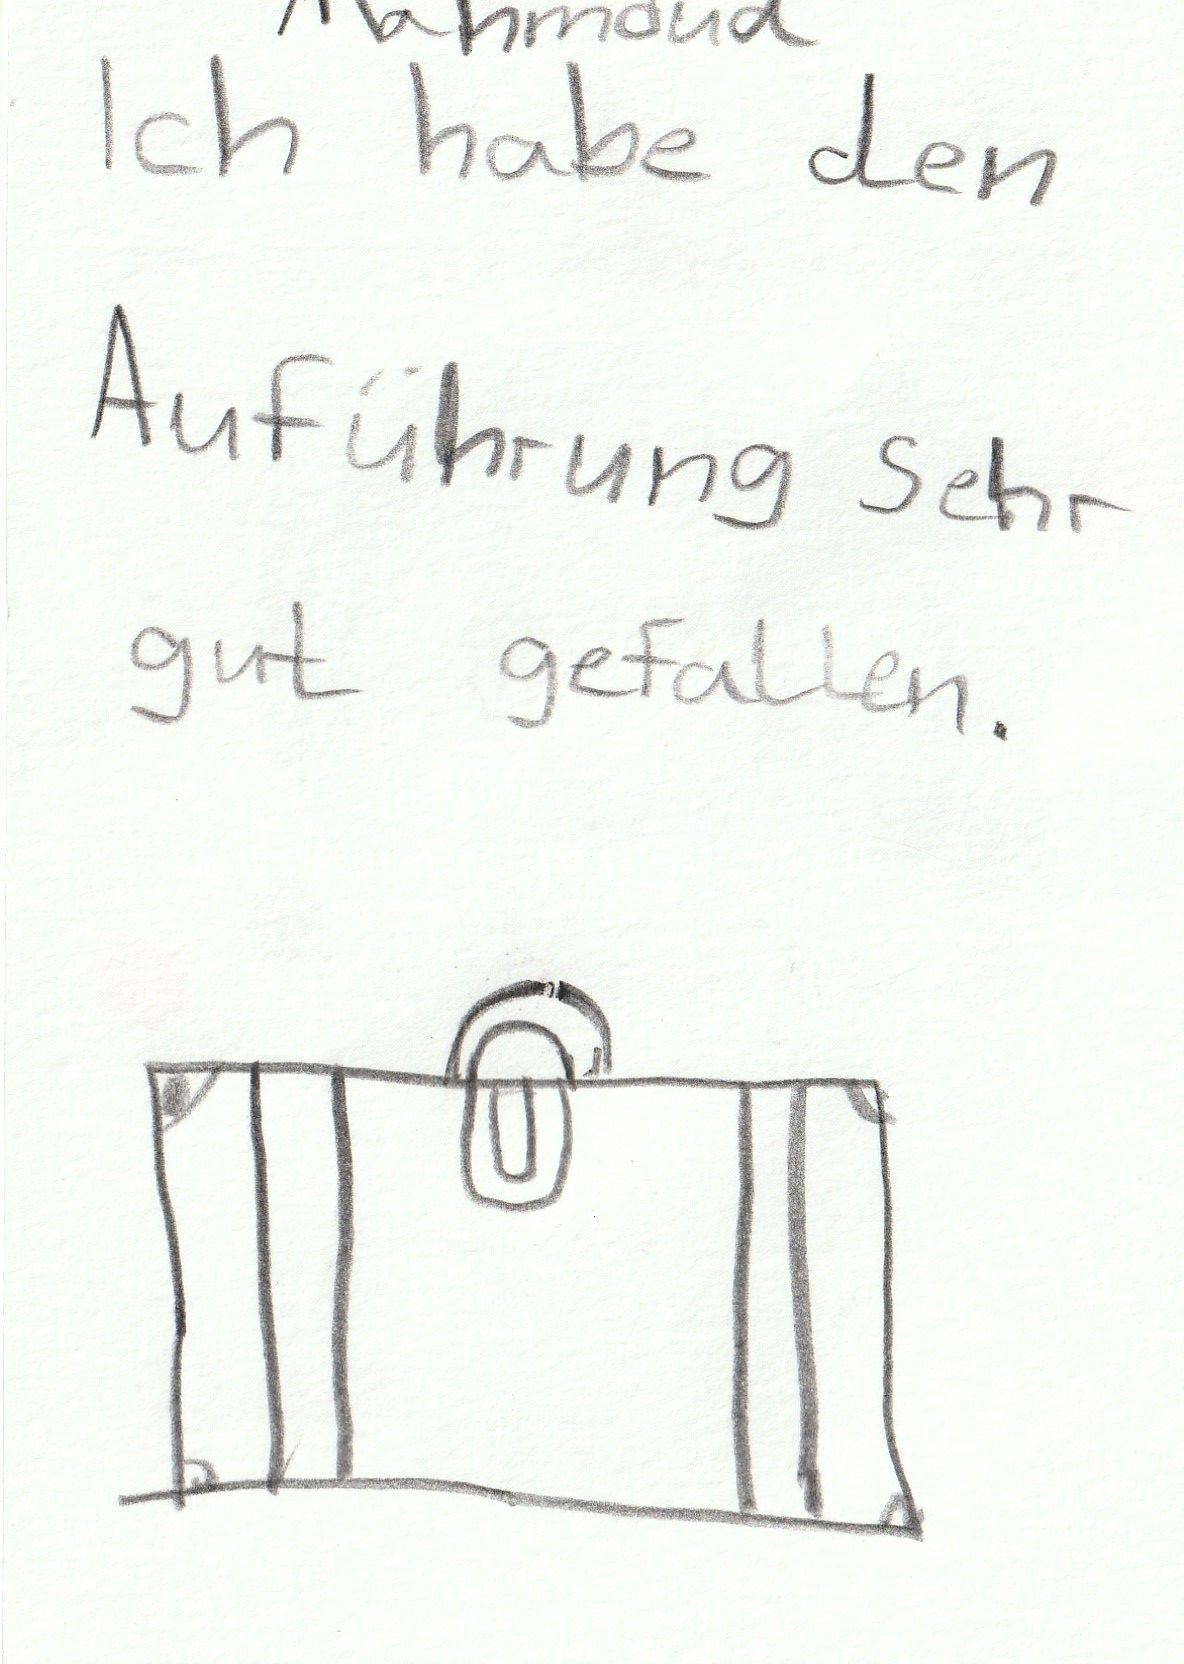 Mahmoud
Ich habe den
Auführung sehr
gut gefallen.